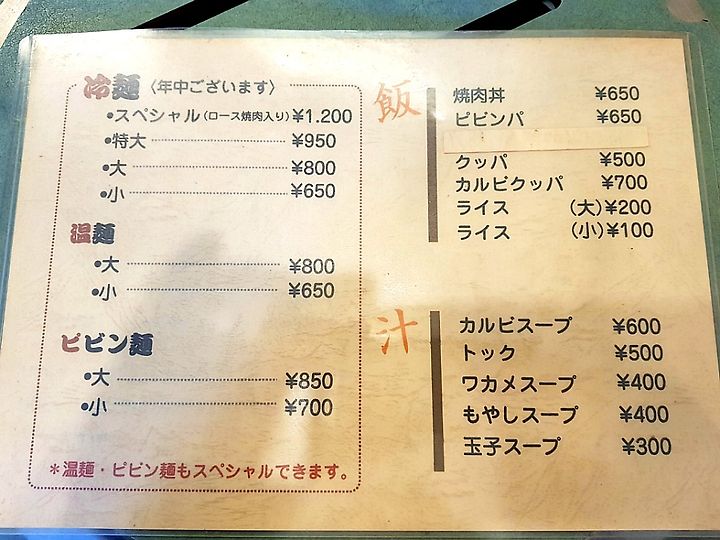 冷麺〈年中ございます〉
•スペシャル(ロース焼肉入り)¥1.200
•特大 ¥950
•大 ¥800
•小 ¥650
温麺
•大 ¥800
•小 ¥650
ピビン麺
•大 ¥850
•小 ¥700
*温麺・ピビン麺もスペシャルできます。
飯
焼肉丼 ¥650
ピビンパ ¥650
クッパ ¥500
カルビクッパ ¥700
ライス (大)¥200
ライス (小)¥100
汁
カルビスープ ¥600
トック ¥500
ワカメスープ ¥400
もやしスープ ¥400
玉子スープ ¥300